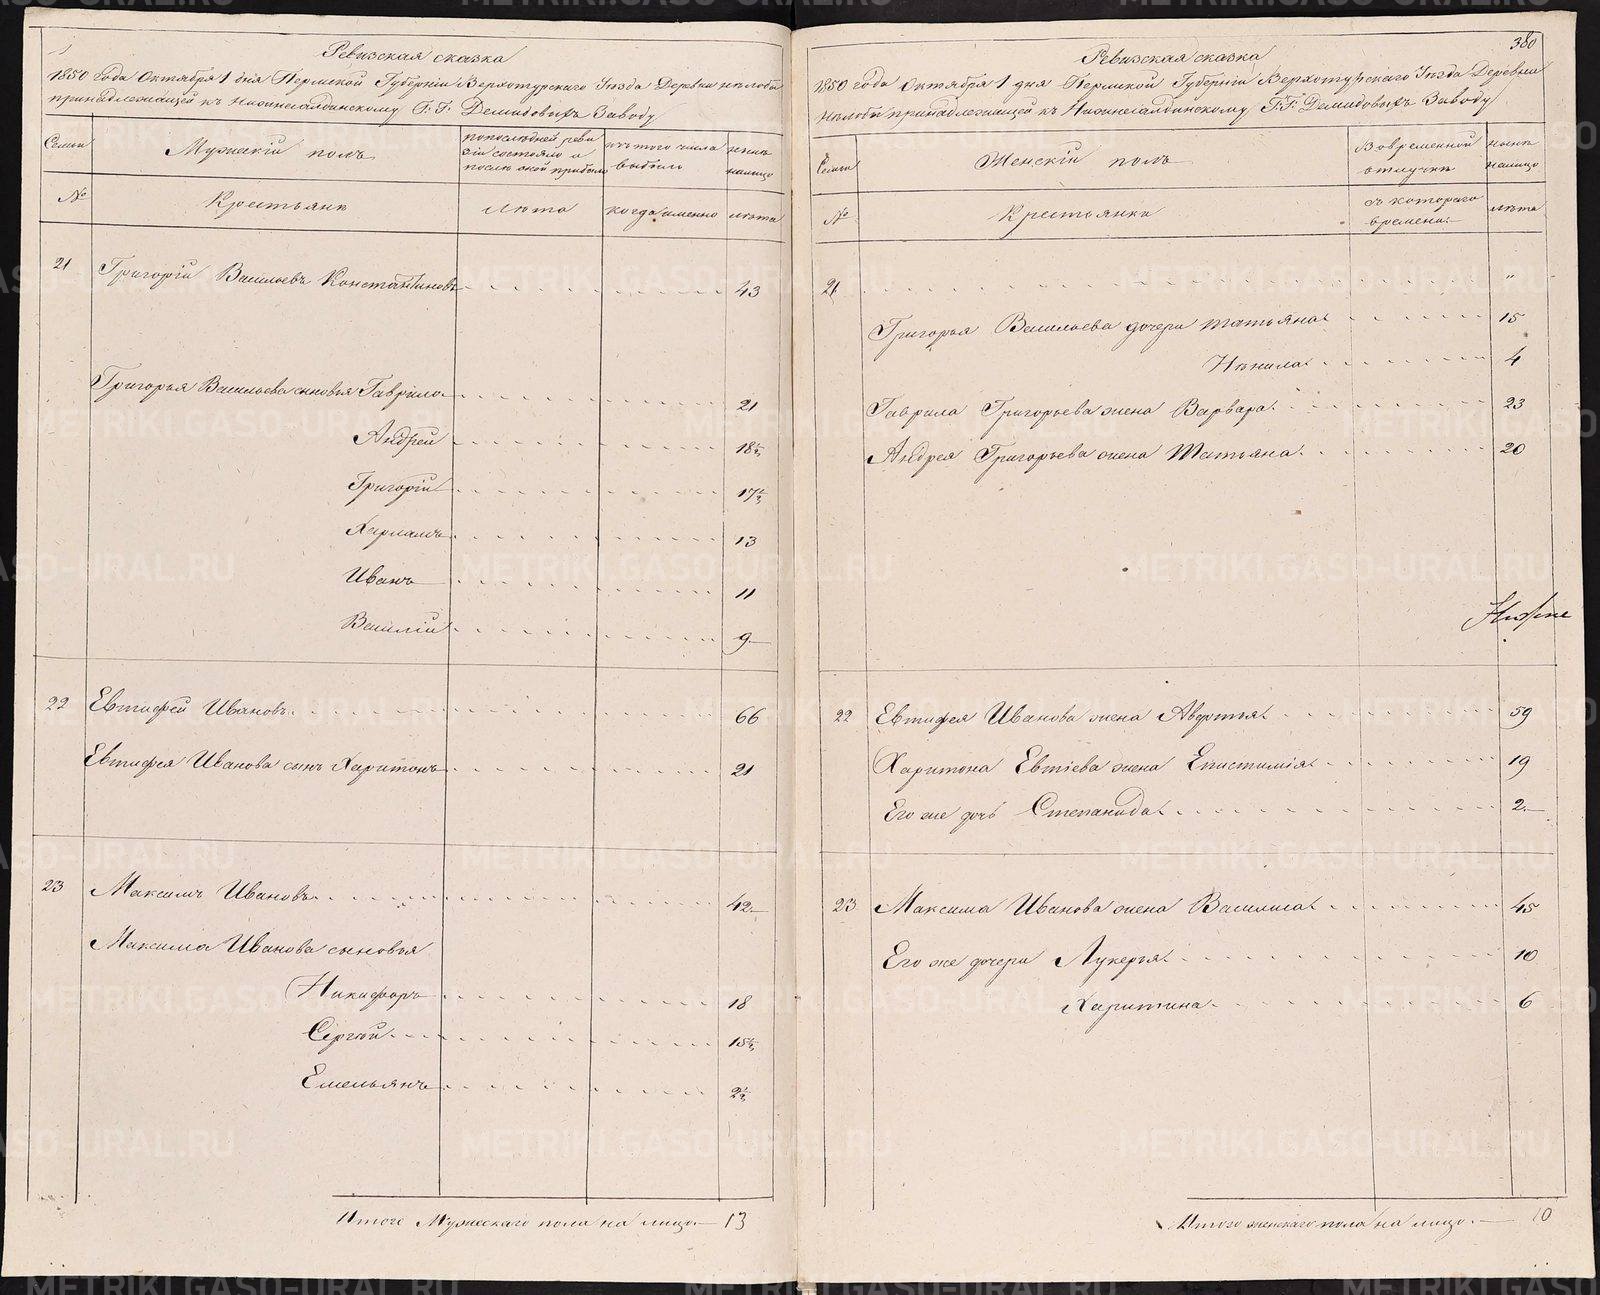 Ревизская сказка
1850 года Октября 1 дня Пермской Губернiи Верхотурскаго Уезда Деревни Нелобы
принадлежащей къ Нижнесалдинскому Г.Г. Демидовыхъ Заводу
Семьи
Мужескiй полъ
по последней реви
зiи состояло и
после оной прибыло
изъ того числа
выбыло
ныне
налицо
№
Крестьяне
Лета
когда именно
лета
21 Григорiй Васильевъ Константиновъ 43
Григорья Васильева сыновья Гаврило 21
Андрей 18 1/2
Григорiй 17 1/2
Харламъ 13
Иванъ 11
Василiй 9
22 Евтифей Ивановъ 66
Евтифея Иванова сынъ Харитонъ 21
23 Максимъ Ивановъ 42
Максима Иванова сыновья
Никифоръ 18
Сергей 15 1/2
Емельянъ 2 1/2
Итого Мужескаго пола на лицо 13
380
Ревизская сказка
1850 года Октября 1 дня Пермской Губернiи Верхотурскаго Уезда Деревни
Нелобы принадлежащей къ Нижнесалдинскому Г.Г. Демидовыхъ Заводу
Семьи
Женскiй полъ
Во временной
отлучке
ныне
налицо
№
Крестьянки
съ котораго
времени
лета
21 "
Григорья Васильева дочери Татьяна 15
Ненила 4
Гаврила Григорьева жена Варвара 23
Андрея Григорьева жена Татьяна 20
22 Евтифея Иванова жена Авдотья 59
Харитона Евтiева жена Епистимiя 19
Его же дочь Степанида 2
23 Максима Иванова жена Василиса 45
Его же дочери Лукерья 10
Харитина 6
Итого женскаго пола на лицо 10
METRIKI.GASO-URAL.RU